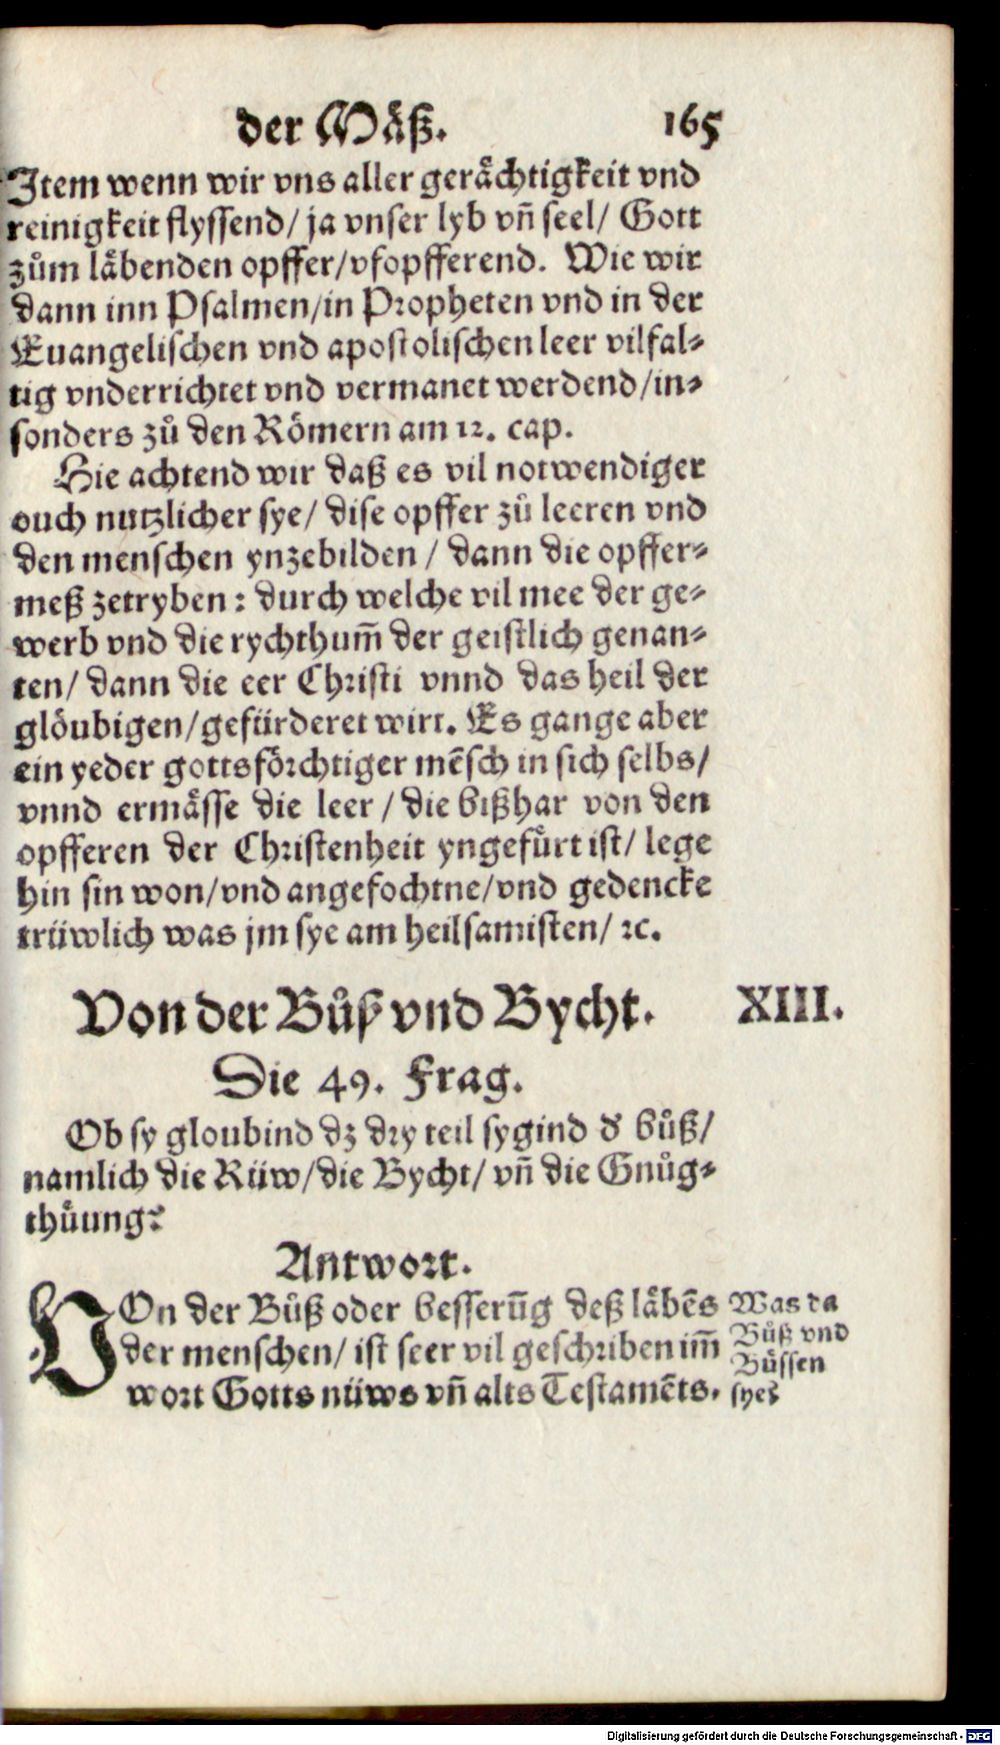 der Mäß. 165
Item wenn wir vns aller gerächtigkeit vnd
reinigkeit flyssend/ ja vnser lyb vñ seel/ Gott
zům läbenden opffer/vfopfferend. Wie wir
dann inn Psalmen/in Propheten vnd in der
Euangelischen vnd apostolischen leer vilfal-
tig vnderrichtet vnd vermanet werdend/in-
sonders zů den Römern am 12. cap.
Hie achtend wir daß es vil notwendiger
ouch nutzlicher sye/ dise opffer zů leeren vnd
den menschen ynzebilden / dann die opffer-
meß zetryben: durch welche vil mee der ge-
werb vnd die rychthum̃ der geistlich genan-
ten/ dann die eer Christi vnnd das heil der
glöubigen/gefürderet wirt. Es gange aber
ein yeder gottsförchtiger mẽsch in sich selbs/
vnnd ermässe die leer / die bißhar von den
opfferen der Christenheit yngefürt ist/ lege
hin sin won/vnd angefochtne/vnd gedencke
trüwlich was jm sye am heilsamisten/ ꝛc.
Von der Bůß vnd Bycht. XIII.
Die 49. Frag.
Ob sy gloubind dz dry teil sygind d' bůß/
namlich die Rüw/die Bycht/ vñ die Gnůg-
thüung?
Antwort.
VOn der Bůß oder besserũg deß läbẽs
der menschen/ ist seer vil geschriben im̃
wort Gotts nüws vñ alts Testamẽts.
Was da
Bůß vnd
Büssen
sye?
Digitalisierung gefördert durch die Deutsche Forschungsgemeinschaft - DFG